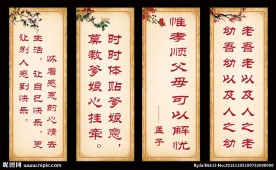 老吾老以及人之老
幼吾幼以及人之幼
惟孝顺父母可以解忧
——孟子
时时体贴爹娘意,
莫教爹娘心挂牵。
怀着感恩的心情去
生活,让自己快乐,更
让别人感到快乐。
昵图网 www.nipic.com